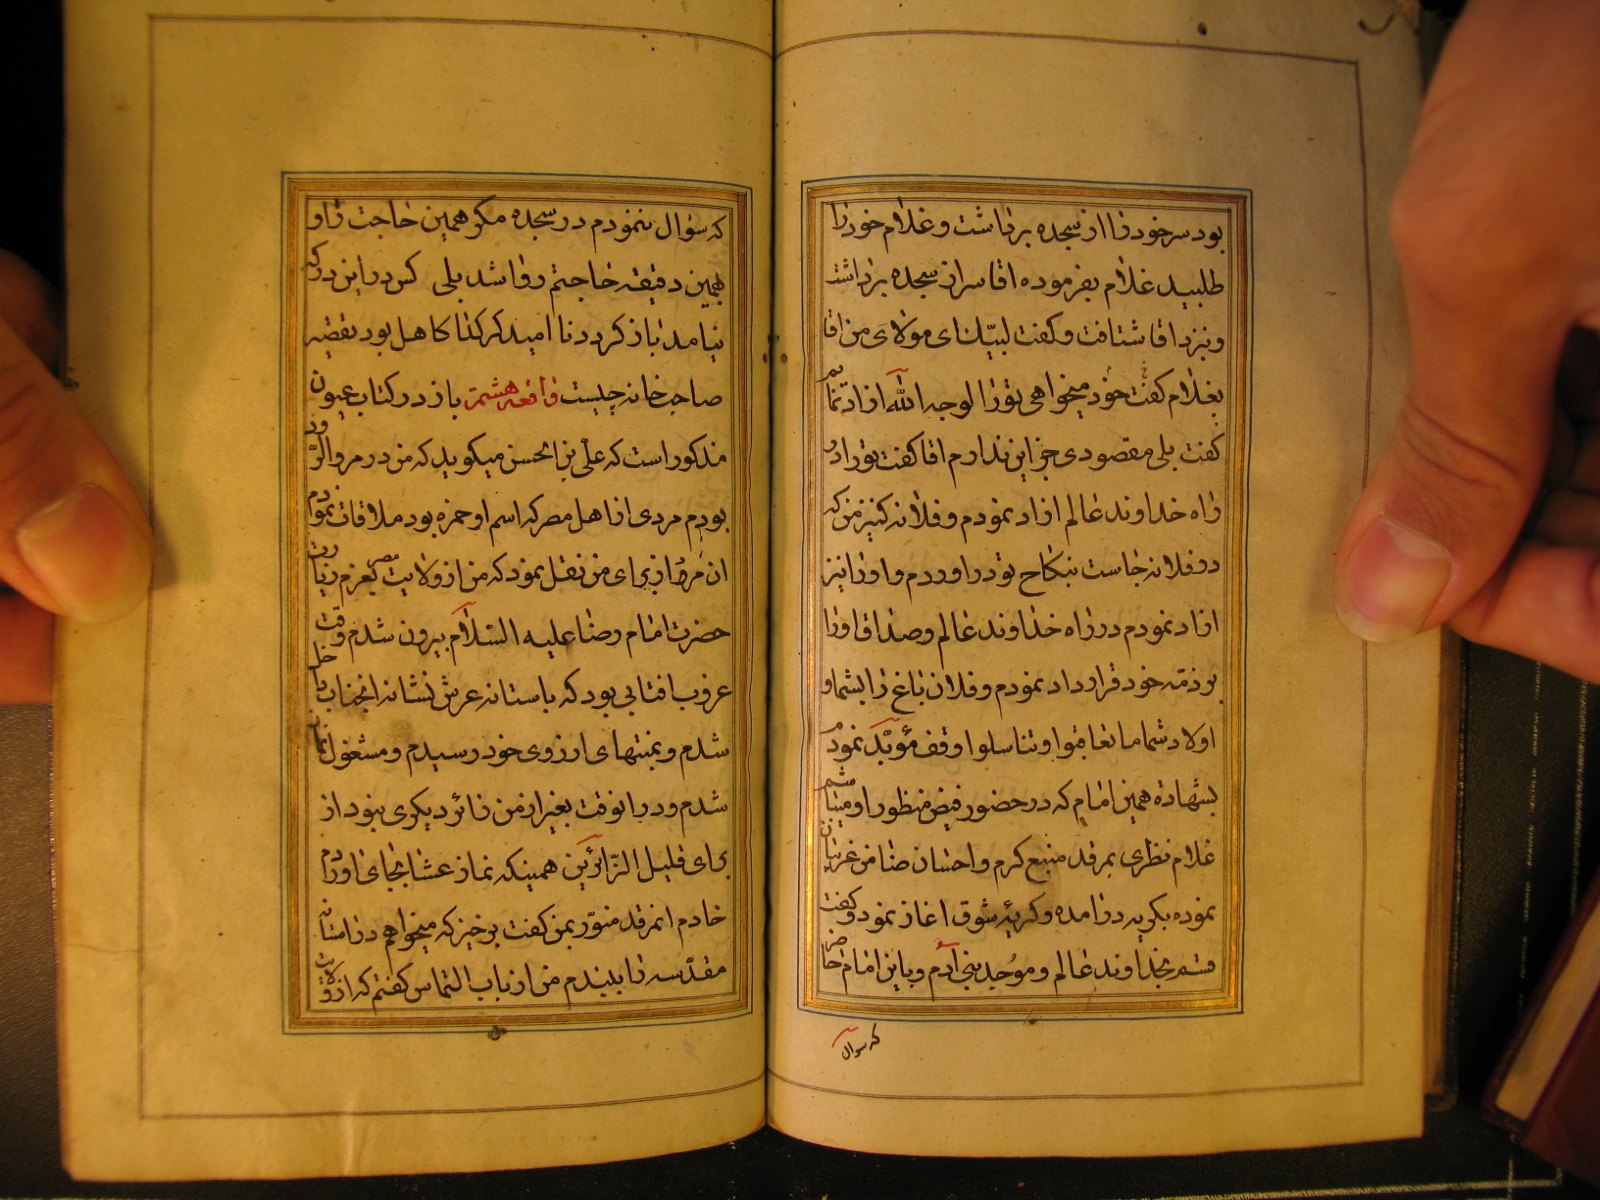 بود سر خود را از سجده برداشت و غلام خود را
طلبید غلام بفرموده اقا سر از سجده برداشت
و بنزد اقا شتافت و کفت لبیک ای مولای من اقا
بغلام کفت خود میخواهی تو را لوجه الله ازاد نمایم
کفت بلی مقصودی جز این ندارم اقا کفت تو را در
راه خداوند عالم ازاد نمودم و فلانه کنیز من که
در فلانه جاست بنکاح تو دراوردم و او را نیز
ازاد نمودم در راه خداوند عالم و صداق او را
بر ذمه خود قرارداد نمودم و فلان باغ را بشما و
اولاد شما ما تعاقبوا و تناسلوا وقف مؤبد نمودم
بشهادة همین امام که در حضور فیض منظور او میباشیم
غلام نظری بمرقد منبع کرم و احسان ضامن غریبان
نموده بکریه درامده و کریۀ شوق اغاز نمود و کفت
قسم بخداوند عالم و موجد بنی ادم و باین امام حاضر
که سوال
که سوال ننمودم در سجده مکر همین حاجت را و
همین دقیقه حاجتم روا شد بلی کس در این درکه
نیامد باز کردد نا امید کر کدا کاهل بود تقصیر
صاحب خانه چیست واقعه هشتم باز در کتاب عیون
مذکور است که علی بن الحسن میکوید که من در مرو الرود
بودم مردی از اهل مصر که اسم او حمزه بود ملاقات نمودم
ان مرد از برای من نقل نمود که من از ولایت مصر بعزم زیارت
حضرت امام رضا علیه السلام بیرون شدم وقت
غروب افتابی بود که باستانه عرش نشانه انجناب داخل
شدم و بمنتهای ارزوی خود رسیدم و مشغول نماز
شدم و در انوقت بغیر از من زائر دیکری نبود از
برای قلیل الزائرین همینکه نماز عشا بجای اوردم
خادم انمرقد منور بمن کفت برخیز که میخواهم در استانه
مقدسه را ببندم من از باب التماس کفتم که از ولایت